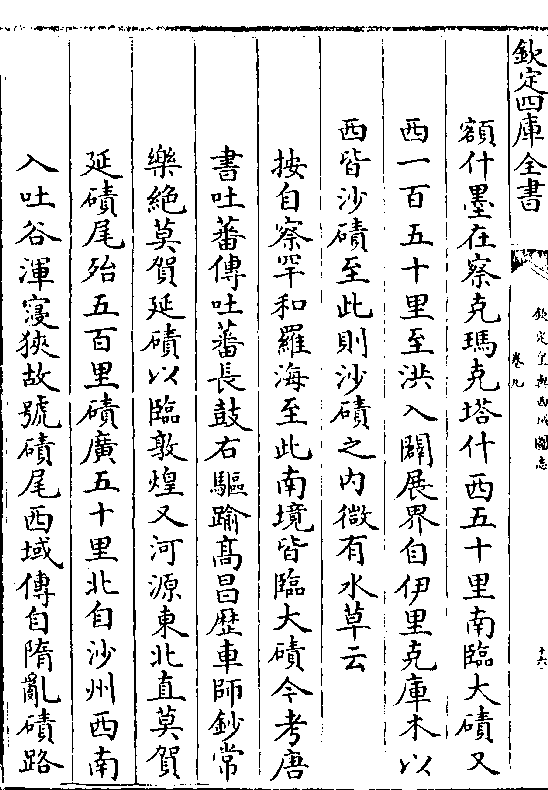 欽定四庫全書
欽定皇輿西域圖志
卷九
十六
額什墨在察克瑪克塔什西五十里南臨大磧又
西一百五十里至洪入闢展界自伊里克庫木以
西皆沙磧至此則沙磧之内微有水草云
按自察罕和羅海至此南境皆臨大磧今考唐
書吐蕃傳吐蕃長鼓右驅踰髙昌歴車師鈔常
樂絶莫賀延磧以臨敦煌又河源東北直莫賀
延磧尾殆五百里磧廣五十里北自沙州西南
入吐谷渾寖狹故號磧尾西域傳自隋亂磧路